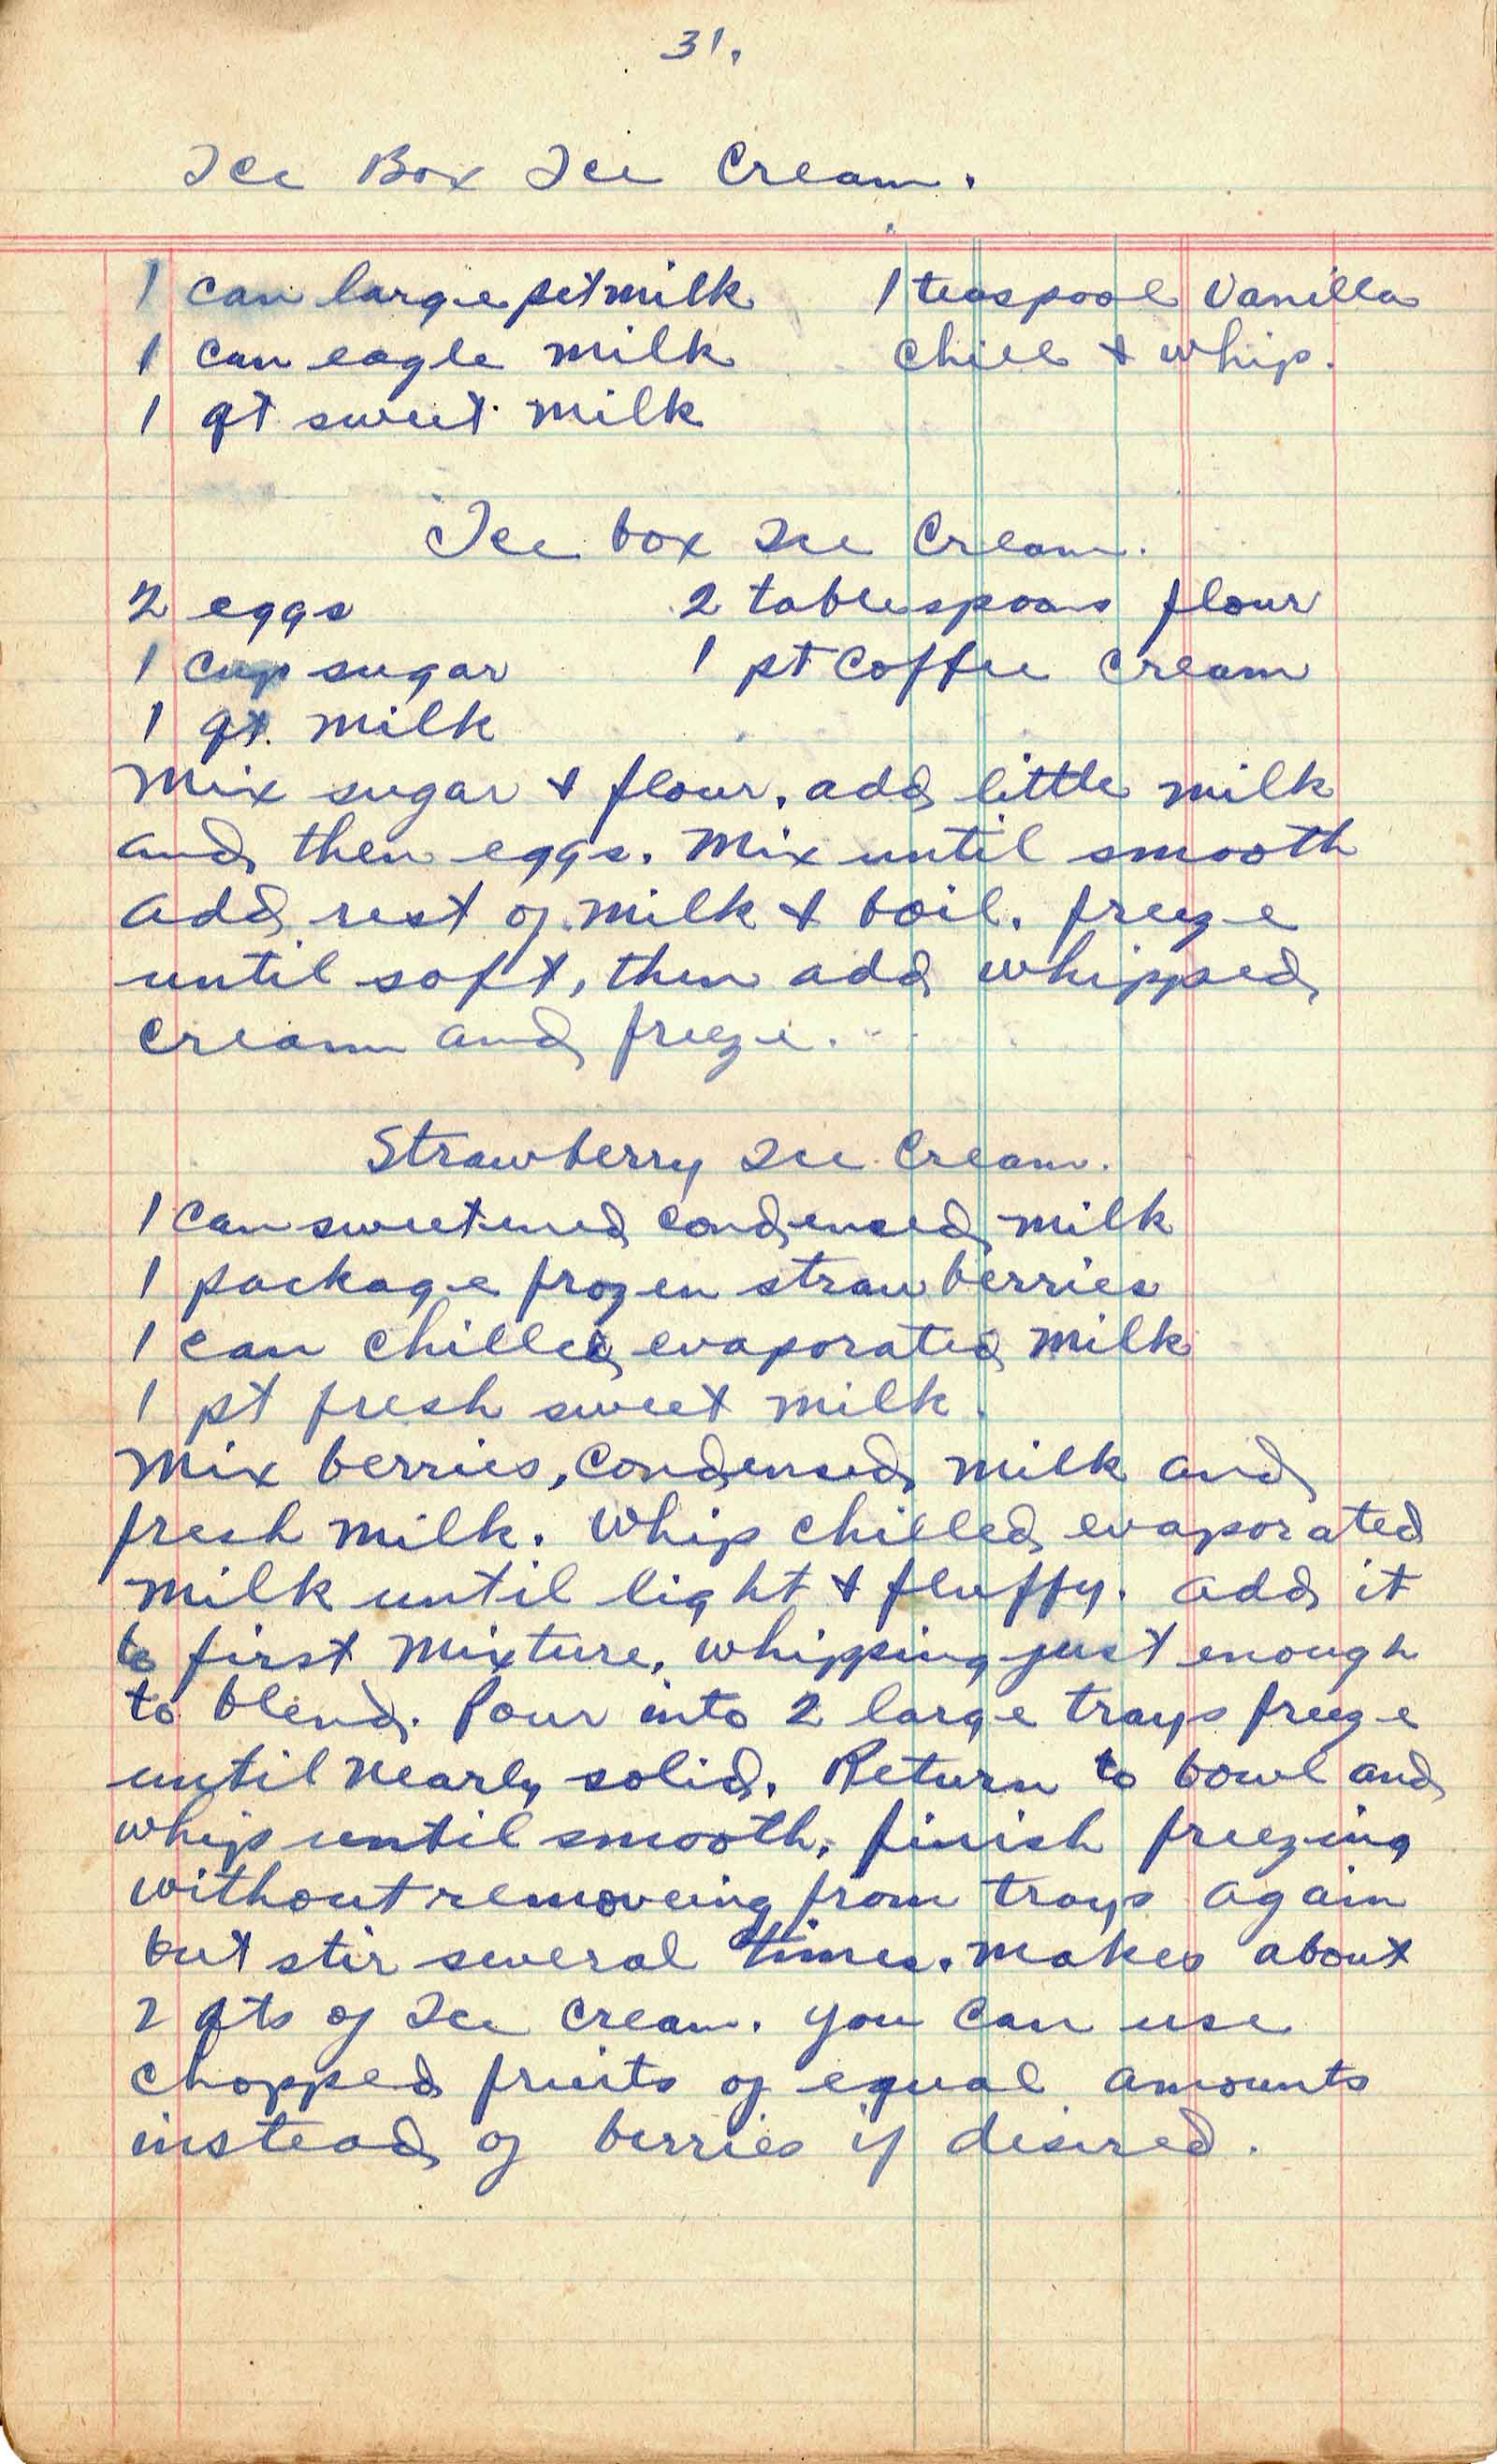 31.
Ice Box Ice Cream.
1 can large pet milk 1 teaspool Vanilla
1 can eagle milk chill & whip.
1 qt sweet milk
Ice box Ice Cream.
2 eggs 2 tablespoons flour
1 cup sugar 1 pt Coffee Cream
1 qt. milk
Mix sugar & flour, add little milk
and then eggs. Mix until smooth
add rest of milk & boil. freeze
until soft, then add whipped
cream and freeze.
Strawberry Ice Cream.
1 can sweetened condensed milk
1 package frozen strawberries
1 can chilled evaporated milk
1 pt fresh sweet milk.
Mix berries, condensed milk and
fresh milk. Whip chilled evaporated
milk until light & fluffy. add it
to first mixture, whipping just enough
to blend. Pour into 2 large trays freeze
until nearly solid. Return to bowl and
whip until smooth, finish freezing
without removeing from trays again
but stir several times. Makes about
2 qts of Ice Cream. you can use
chopped fruits of equal amounts
instead of berries if desired.